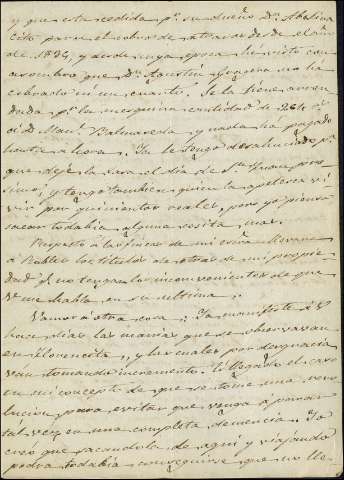 y que este cedida pr. su dueño Dn. Abelino
Cito para el cobro de atras desde el año
de 1834, y desde cuya epoca hé visto con
asombro que Dn. Agustin no há
cobrado ni un cuarto. Se la tiene arren
dada pr. la mezquina cantidad de 264 rs
al d. Man. Balmaseda y nada há pagado
hasta ahora. Ya le tengo desahuciado pa.
que deje la casa el dia de Sn. Juan proc
simo, y tengo tambien quien la apetezca vi
vir por quinientos reales, pero yo pienso
sacar todabia alguna cosita mas.
Respecto á las fincas de mi Moreno
á los titulos de otras de mi propie
dad qe. no tengan los inconvenientes de que
V. me habla en su ultima.
Vamos á otra cosa. Ya manifesté á V.
hace dias las manías que se observavan
en, y las cuales por desgracia
van tomando incremento. Es llegado el caso
en mi concepto de que se tome una reso
lucion, para evitar que venga á parar
tal vez en una completa demencia. Yo
creo que sacandola de aqui y viajando
podra todabia conseguirse que no lle